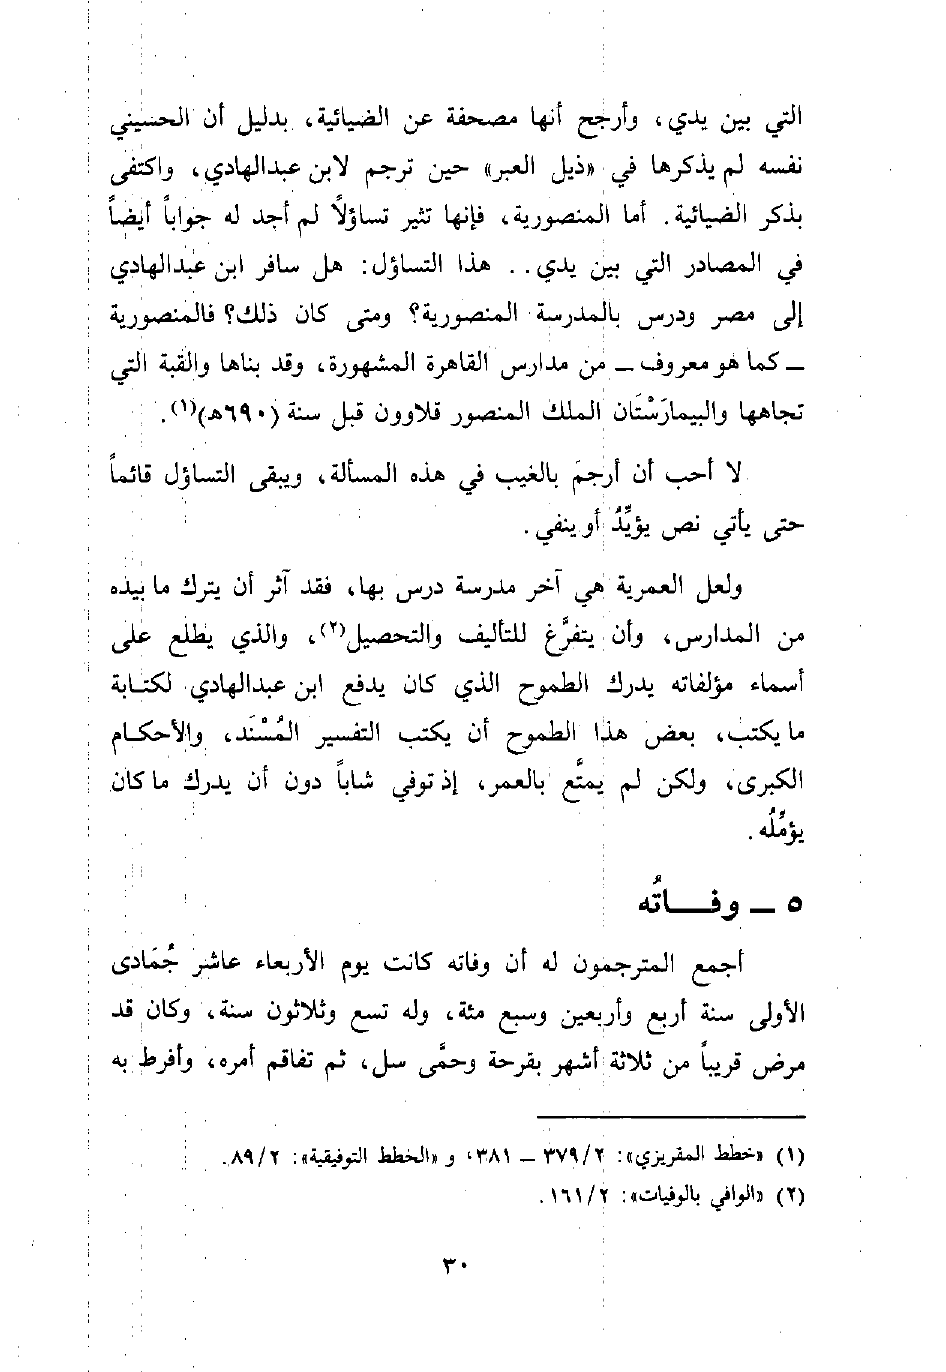 التي بين يدي، وأرجح أنها مصحفة عن الضيائية، بدليل أن الحسيني
نفسه لم يذكرها في «ذيل العبر» حين ترجم لابن عبدالهادي، واكتفى
بذكر الضيائية. أما المنصورية، فإنها تثير تساؤلاً لم أجد له جواباً أيضاً
في المصادر التي بين يدي.. هذا التساؤل: هل سافر ابن عبدالهادي
إلى مصر ودرس بالمدرسة المنصورية؟ ومتى كان ذلك؟ فالمنصورية
ـ كما هو معروف ـ من مدارس القاهرة المشهورة، وقد بناها والقبة التي
تجاهها والبيمارَسْتَان الملك المنصور قلاوون قبل سنة (٦٩٠هـ)(١).
لا أحب أن أرجمَ بالغيب في هذه المسألة، ويبقى التساؤل قائماً
حتى يأتي نص يؤيِّدُ أو ينفي.
ولعل العمرية هي آخر مدرسة درس بها، فقد آثر أن يترك ما بيده
من المدارس، وأن يتفرَّغ للتأليف والتحصيل(٢)، والذي يطلع على
أسماء مؤلفاته يدرك الطموح الذي كان يدفع ابن عبدالهادي لكتابة
ما يكتب، بعض هذا الطموح أن يكتب التفسير المُسْنَد، والأحكام
الكبرى، ولكن لم يمتَّع بالعمر، إذ توفي شاباً دون أن يدرك ما كان
يؤمِّلُه.
٥ ـ وفـــاتُه
أجمع المترجمون له أن وفاته كانت يوم الأربعاء عاشر جُمَادى
الأولى سنة أربع وأربعين وسبع مئة، وله تسع وثلاثون سنة، وكان قد
مرض قريباً من ثلاثة أشهر بقرحة وحمَّى سل، ثم تفاقم أمره، وأفرط به
(١) «خطط المقريزي»: ٣٧٩/٢ ـ ٣٨١، و «الخطط التوفيقية»: ٨٩/٢.
(٢) «الوافي بالوفيات»: ١٦١/٢.
٣٠